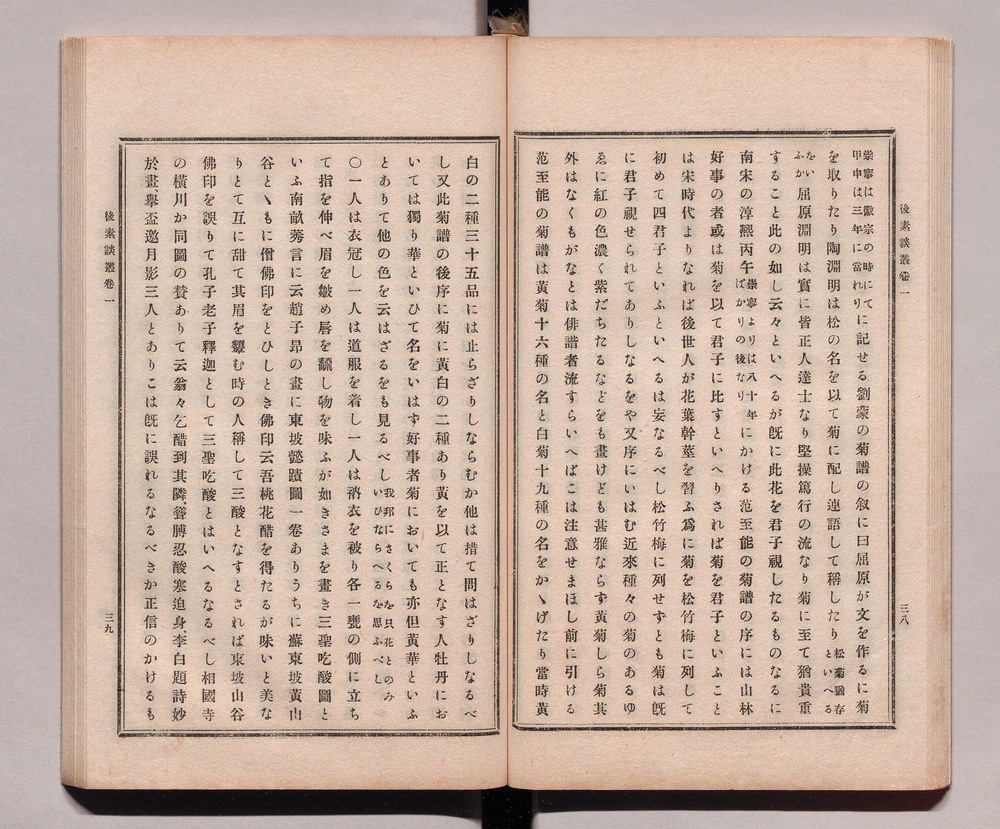 後素談叢卷一
三八
崇寧は徽宗の時にて
甲申は三年に當れり に記せる劉蒙の菊譜の叙に曰屈原が文を作るに菊
を取りたり陶淵明は松の名を以て菊に配し連語して稱したり 松菊猶存
といへる
をい
ふか 屈原淵明は實に皆正人達士なり堅操篤行の流なり菊に至て猶貴重
すること此の如し云々といへるが既に此花を君子視したるものなるに
南宋の淳熙丙午 崇寧よりは八十年
ばかりの後なり にかける范至能の菊譜の序には山林
好事の者或は菊を以て君子に比すといへりされば菊を君子といふこと
は宋時代よりなれば後世人が花葉幹莖を習ふ爲に菊を松竹梅に列して
初めて四君子といふといへるは妄なるべし松竹梅に列せずとも菊は既
に君子視せられてありしなるをや又序にいはむ近來種々の菊のあるゆ
ゑに紅の色濃く紫だちたるなどをも畫けども甚雅ならず黃菊しら菊其
外はなくもがなとは俳諧者流すらいへばこは注意せまほし前に引ける
范至能の菊譜は黃菊十六種の名と白菊十九種の名をかゝげたり當時黃
白の二種三十五品には止らざりしならむか他は措て問はざりしなるべ
し又此菊譜の後序に菊に黃白の二種あり黃を以て正となす人牡丹にお
いては獨り華といひて名をいはず好事者菊においても亦但黃華といふ
とありて他の色を云はざるをも見るべし 我邦にさくらを只花とのみ
いひならへるを思ふべし
〇一人は衣冠し一人は道服を着し一人は衲衣を被り各一甕の側に立ち
て指を伸べ眉を皺め唇を蹙し物を味ふが如きさまを畫き三聖吃酸圖と
いふ南畝莠言に云趙子昻の畫に東坡懿蹟圖一卷ありうちに蘇東坡黃山
谷とゝもに僧佛印をとひしとき佛印云吾桃花醋を得たるが味いと美な
りとて互に甜て其眉を顰む時の人稱して三酸となすとされば東坡山谷
佛印を誤りて孔子老子釋迦として三聖吃酸とはいへるなるべし相國寺
の橫川か同圖の賛ありて云翁々乞醋到其隣聳膊忍酸寒迫身、李白題詩妙
於畫、擧盃邀月影三人とありこは既に誤れるなるべきか正信のかけるも
後素談叢卷一
三九